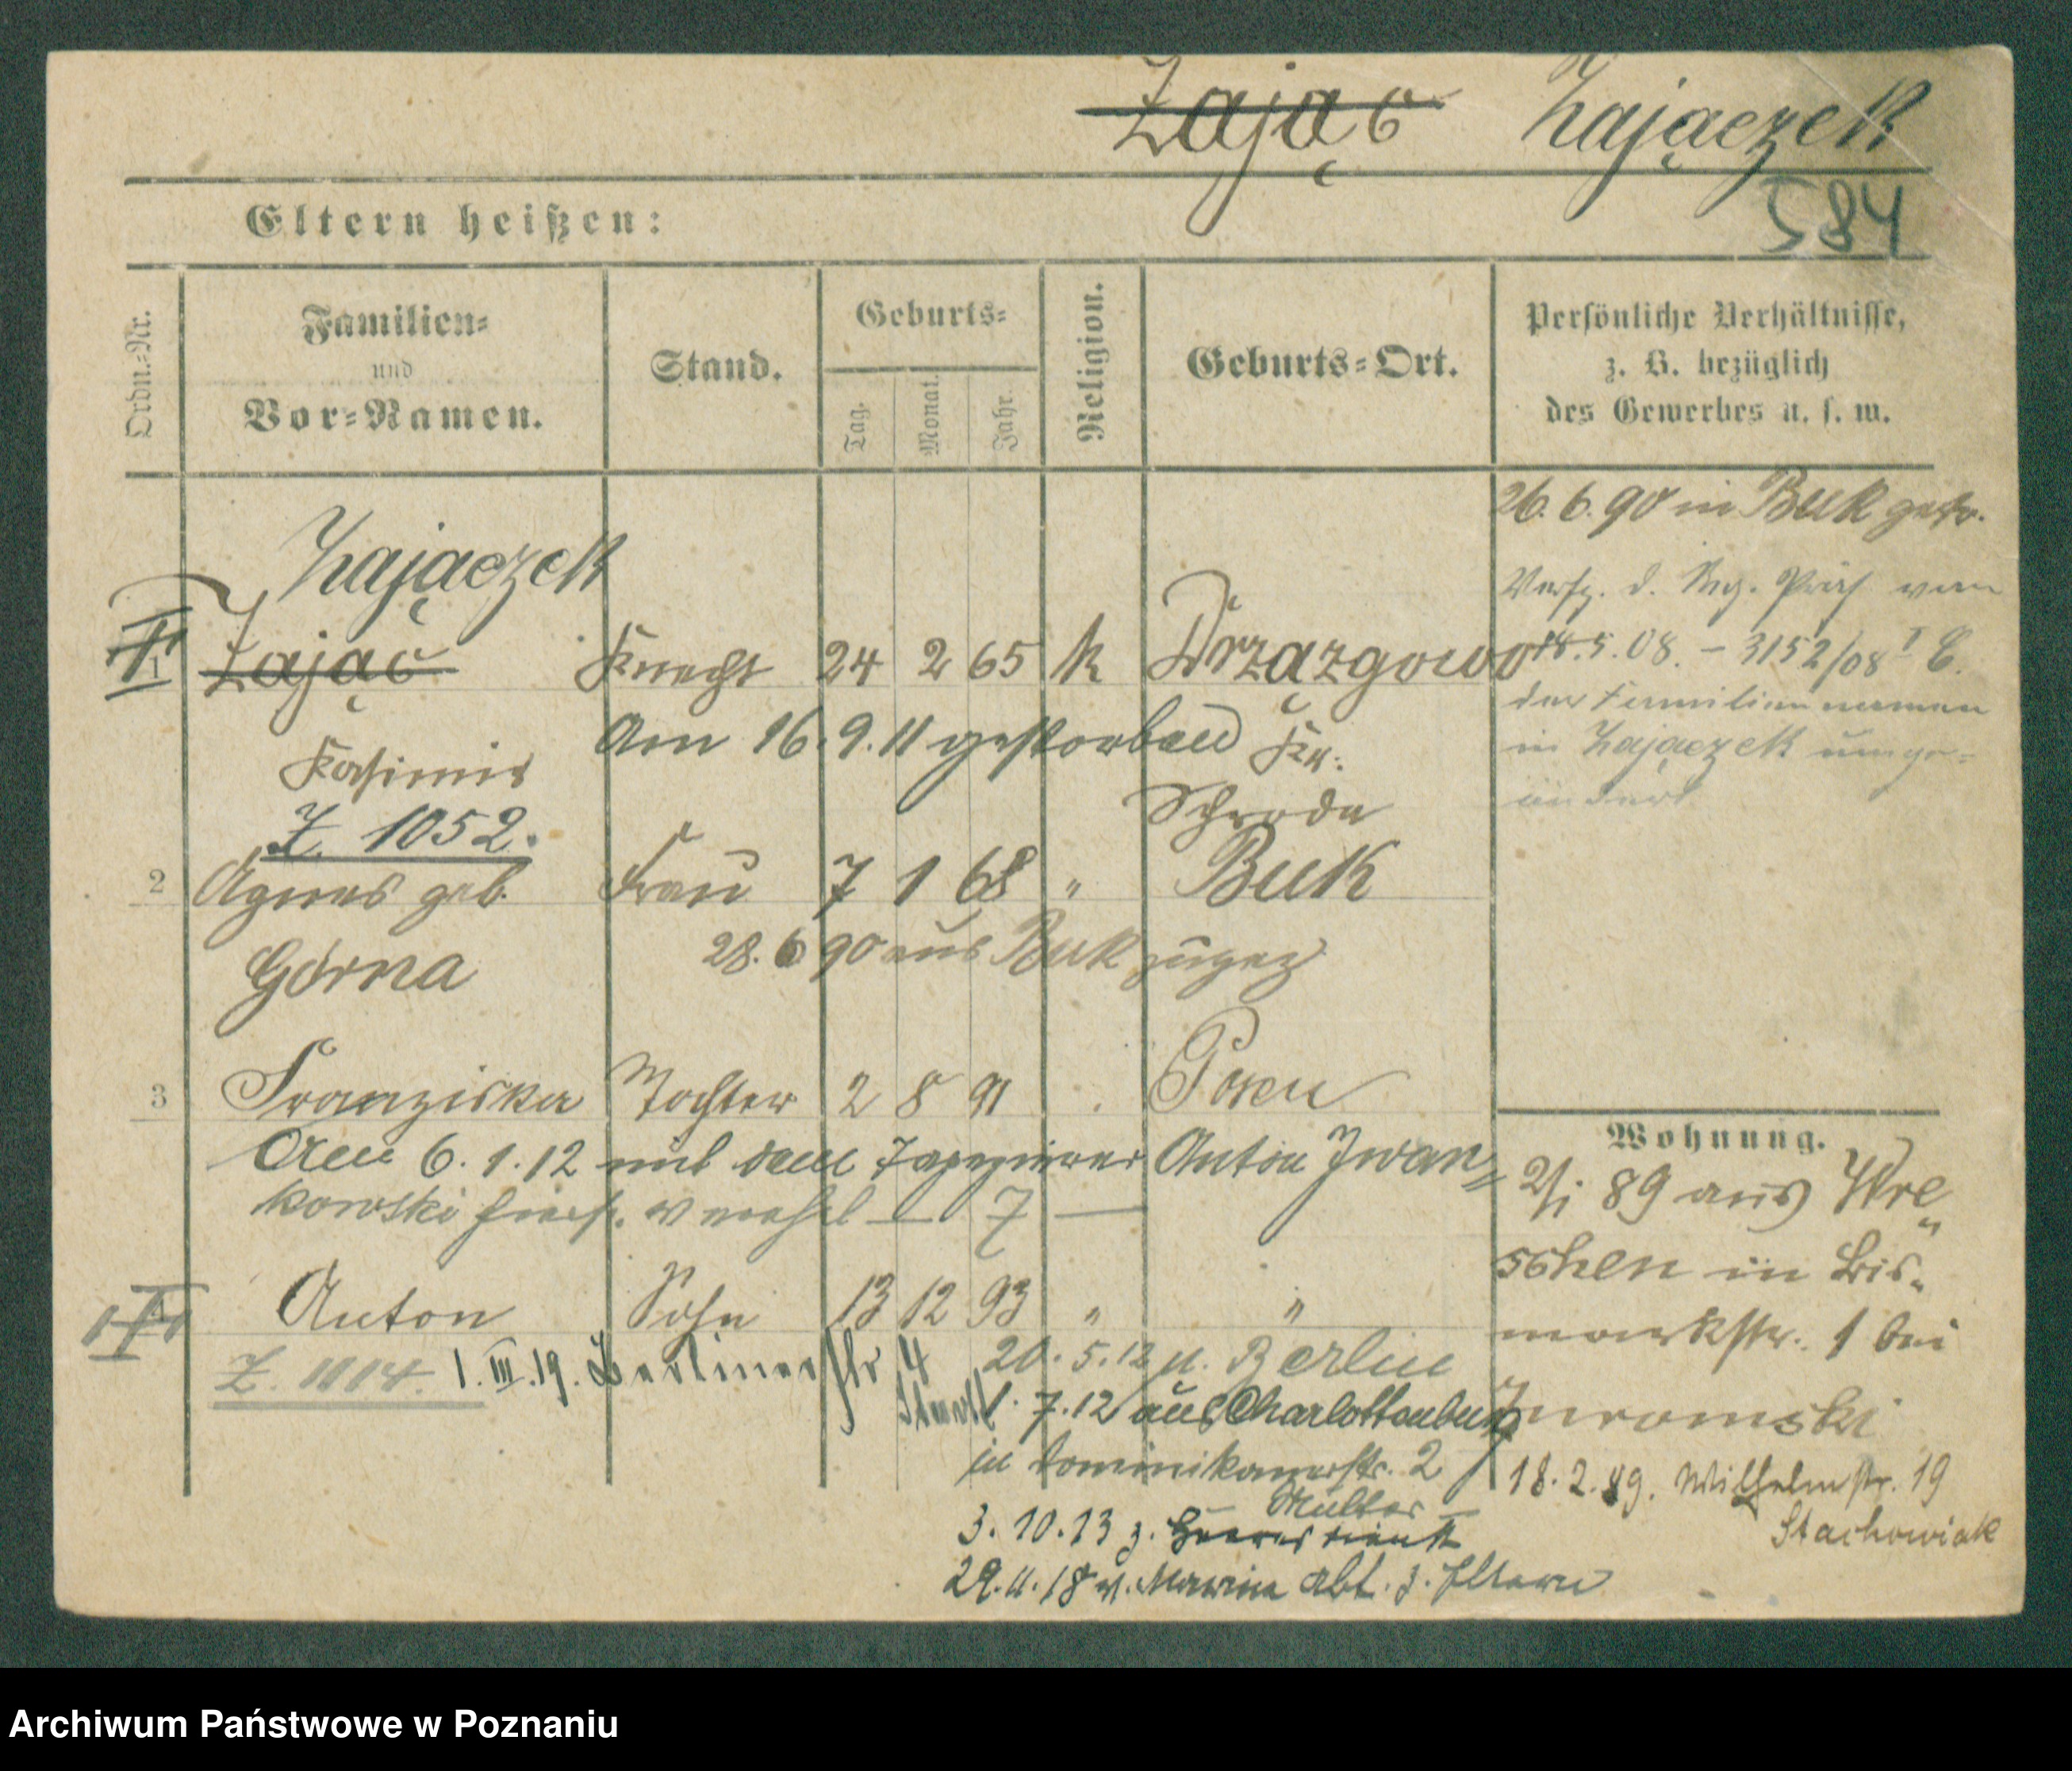 Zając Zajączek
584
Eltern heißen:
Ordn.-Nr.
Familien-
und
Vor-Namen.
Stand.
Geburts-
Tag.
Monat.
Jahr.
Religion.
Geburts-Ort.
Persönliche Verhältnisse,
z. B. bezüglich
des Gewerbes u. s. w.
26.6.90 in Buk getr.
Verfg. d. Reg. Präs vom
18.5.08. – 3152/08 I C.
der Familiennamen
in Zajączek umge-
ändert
Zajączek
1 Zając Knecht 24 2 65 k Drzązgowo
Am 16.9.11 gestorben Kr.
Kasimir
Schroda
Z. 1052.
2 Agnes geb. Frau 7 1 68 " Buk
Górna 28.6 90 aus Buk zugez
3 Franziska Tochter 2 8 91 Posen
Am 6.1.12 mit dem Tapezierer Anton Iwan=
kowski hiers. verehel — 7 —
Anton Sohn 13 12 93 " "
Z. 1114. 1.III.19. Berlinerstr 4
20.5.12 n. Berlin
1.7.12 aus Charlottenburg
in Dominikanerstr. 2
Mutter
3.10.13 z. Heeresdienst
29.11.18 v. Marine Abt. z. Eltern
Wohnung.
2/1 89 aus Wre
schen in Bis-
markstr. 1 bei
18.2.89. Wilhelmstr. 19
Stachowiak
Archiwum Państwowe w Poznaniu